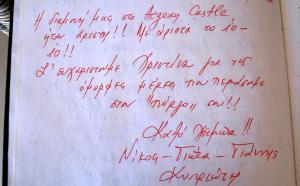 Η διαμονή μας στο Aegean Castle
ήταν άριστη!! Με άριστα το 10-
10!!
Σ' ευχαριστούμε Χριστίνα για τις
όμορφες μέρες που περάσαμε
στον "πύργο" σου!!
Καλό Χειμώνα!!
Νίκος - Γιώτα - Γιάννης